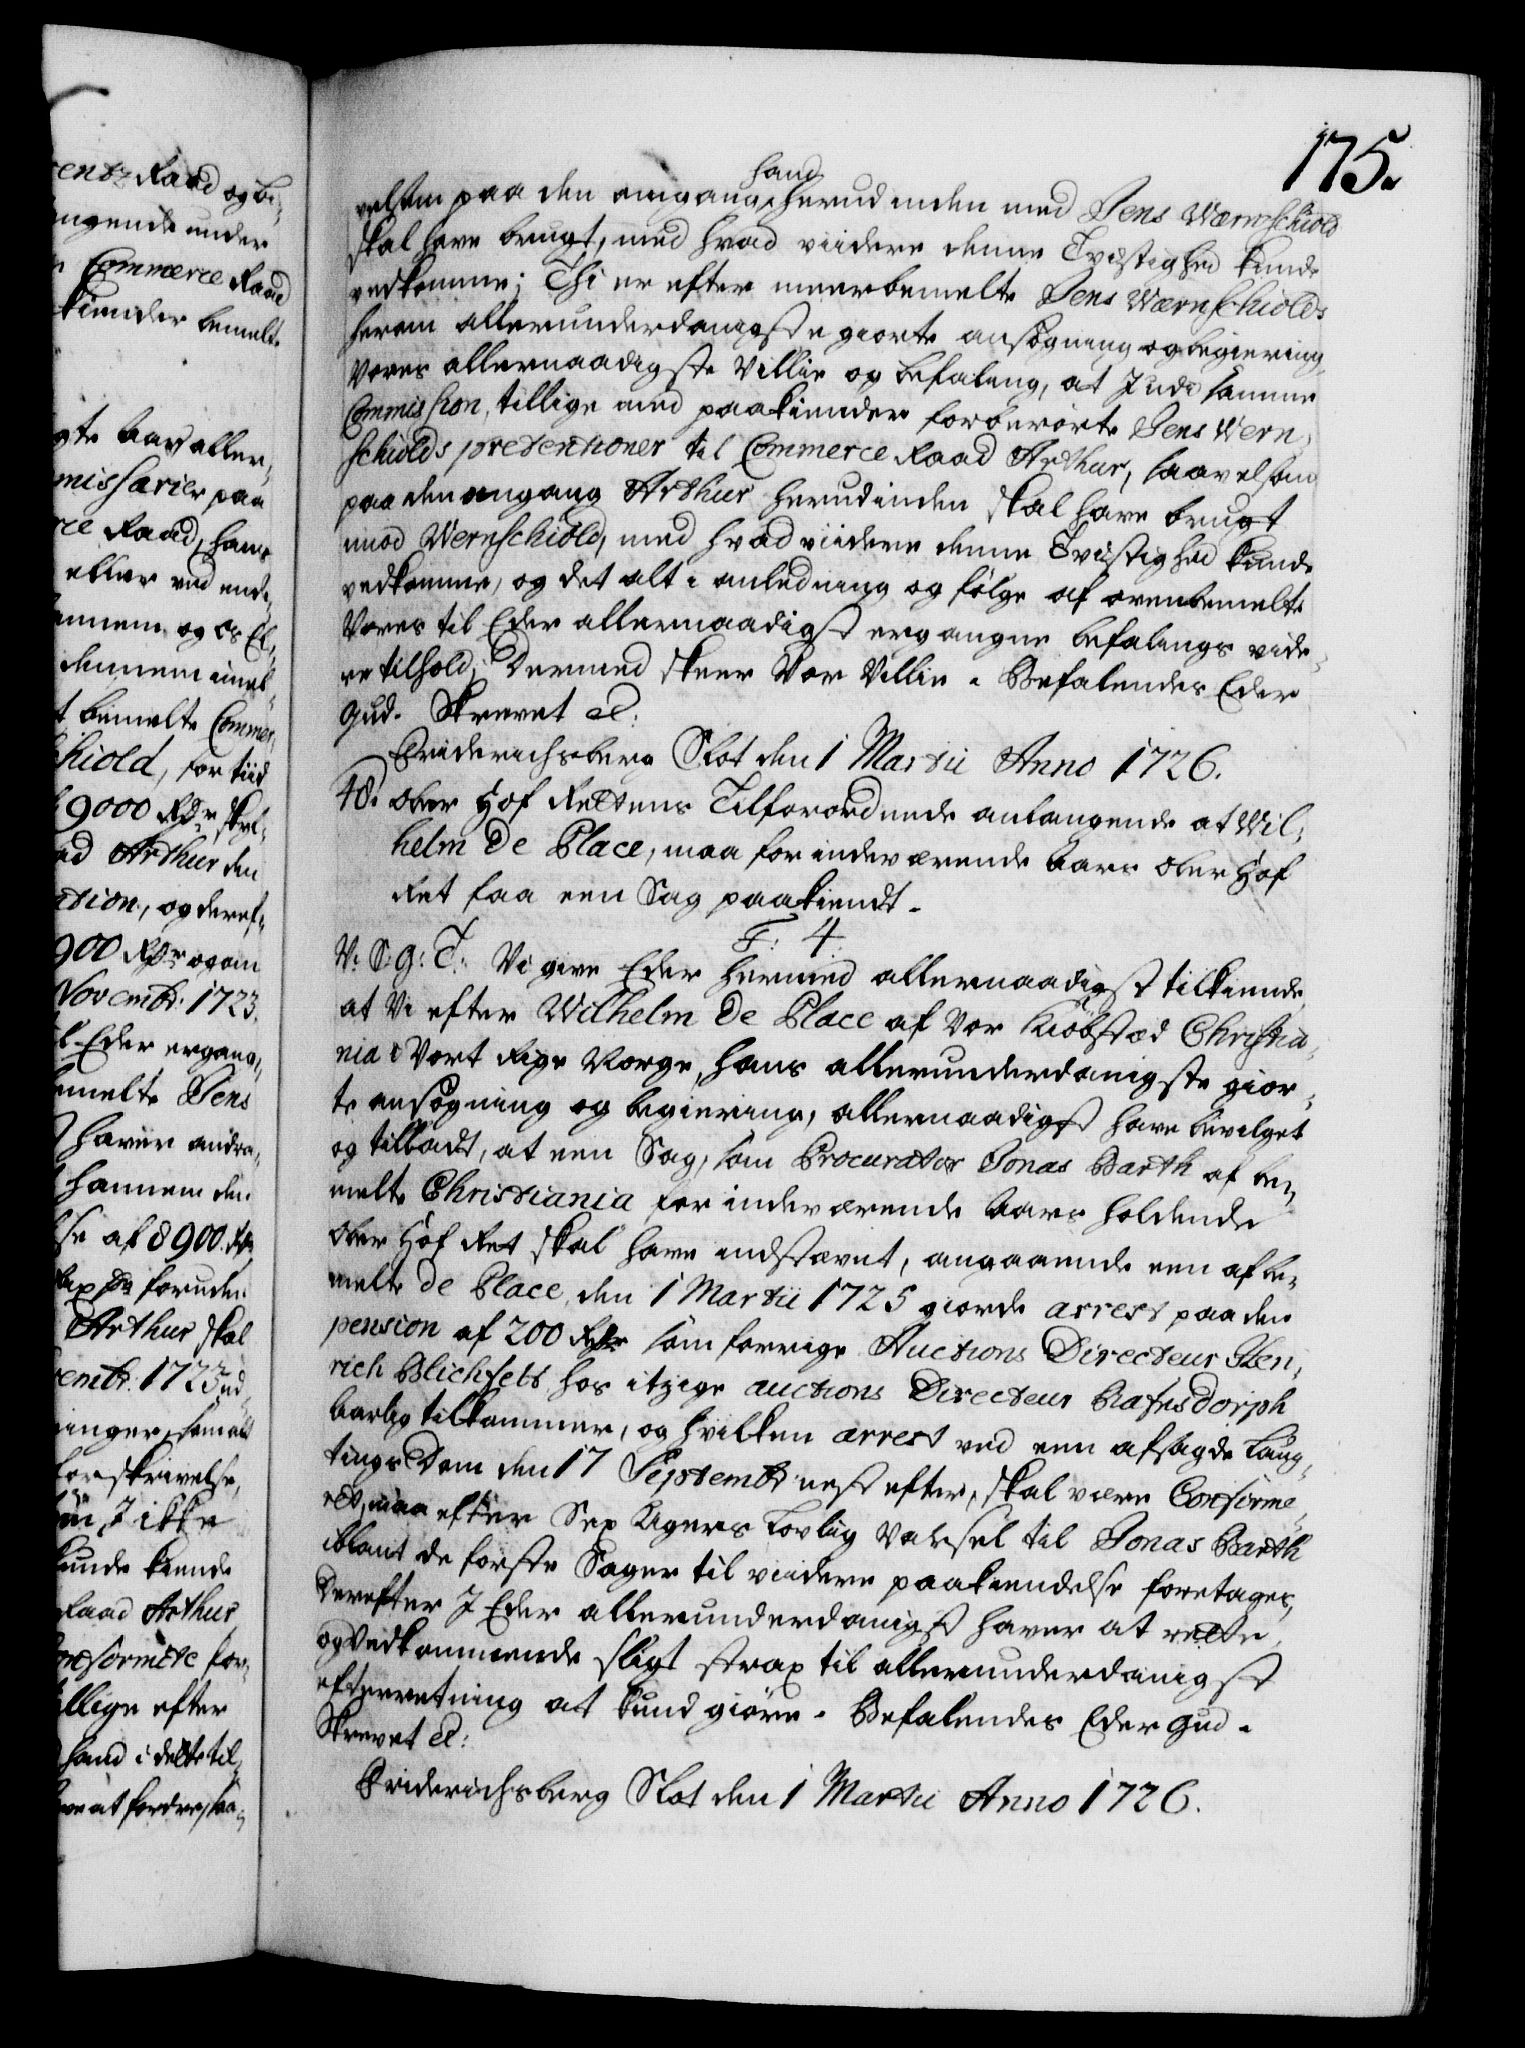 175.
velsom paa den omgang hand herudinden med Jens Wærnschiold
skal have brugt, med hvad viidere denne Tvistighed kunde
vedkomme; Thi er efter meerbemelte Jens Wærnschiolds
herom allerunderdanigste giorte ansøgning og begiering,
Vores allernaadigste Villie og befaling, at I udi samme
Commission, tillige med paakiender forberørte Jens Wern,
schiolds pretentioner til Commerce Raad Arthur, saavelsom
paa den omgang Arthur herudinden skal have brugt
imod Wernschiold, med hvad viidere denne Tvistighed kunde
vedkomme, og det alt i anledning og følge af ovenbemelte
Vores til Eder allernaadigst ergangne befalings vide-
re tilhold; Dermed skeer Vor Villie. Befalendes Eder
Gud. Skrevet etc:
Friderichsberg Slot den 1 Martii Anno 1726.
48. Ober Hof Rettens Tilforordnede anlangende at Wil,
helm De Place, maa for indeværende Aars Ober Hof
Ret faa een Sag paakiendt.
F: 4.
V: S: G: T: Vi give Eder hermed allernaadigst tilkiende,
at Vi efter Wilhelm De Place af Vor Kiöbstæd Christia,
nia i Vort Rige Norge, hans allerunderdanigste gior,
te ansøgning og begiering, allernaadigst have bevilget
og tilladt, at een Sag, som Procurator Jonas Barth af be,
melte Christiania for indeværende Aars holdende
Ober Hof Ret skal have indstævnt, angaaende een af be,
melte De Place, den 1 Martii 1725 giorde arrest paa den
pension af 200 Rdr som forrige Auctions Directeur Hen,
rich Blichfelt hos itzige auctions Directeur Rafnsdorph
aarlig tilkommer, og hvilken arrest ved een afsagde Laug,
tings Dom den 17 Septembr: nest efter, skal være Confirme,
ret, maa efter Sex Ugers Lovlig Varsel til Jonas Barth
iblant de første Sager til viidere paakiendelse foretages,
Derefter I Eder allerunderdanigst haver at rette,
og Vedkommende sligt strax til allerunderdanigst
efterretning at kundgiøre. Befalendes Eder Gud.
Skrevet etc:
Friderichsberg Slot den 1 Martii Anno 1726.